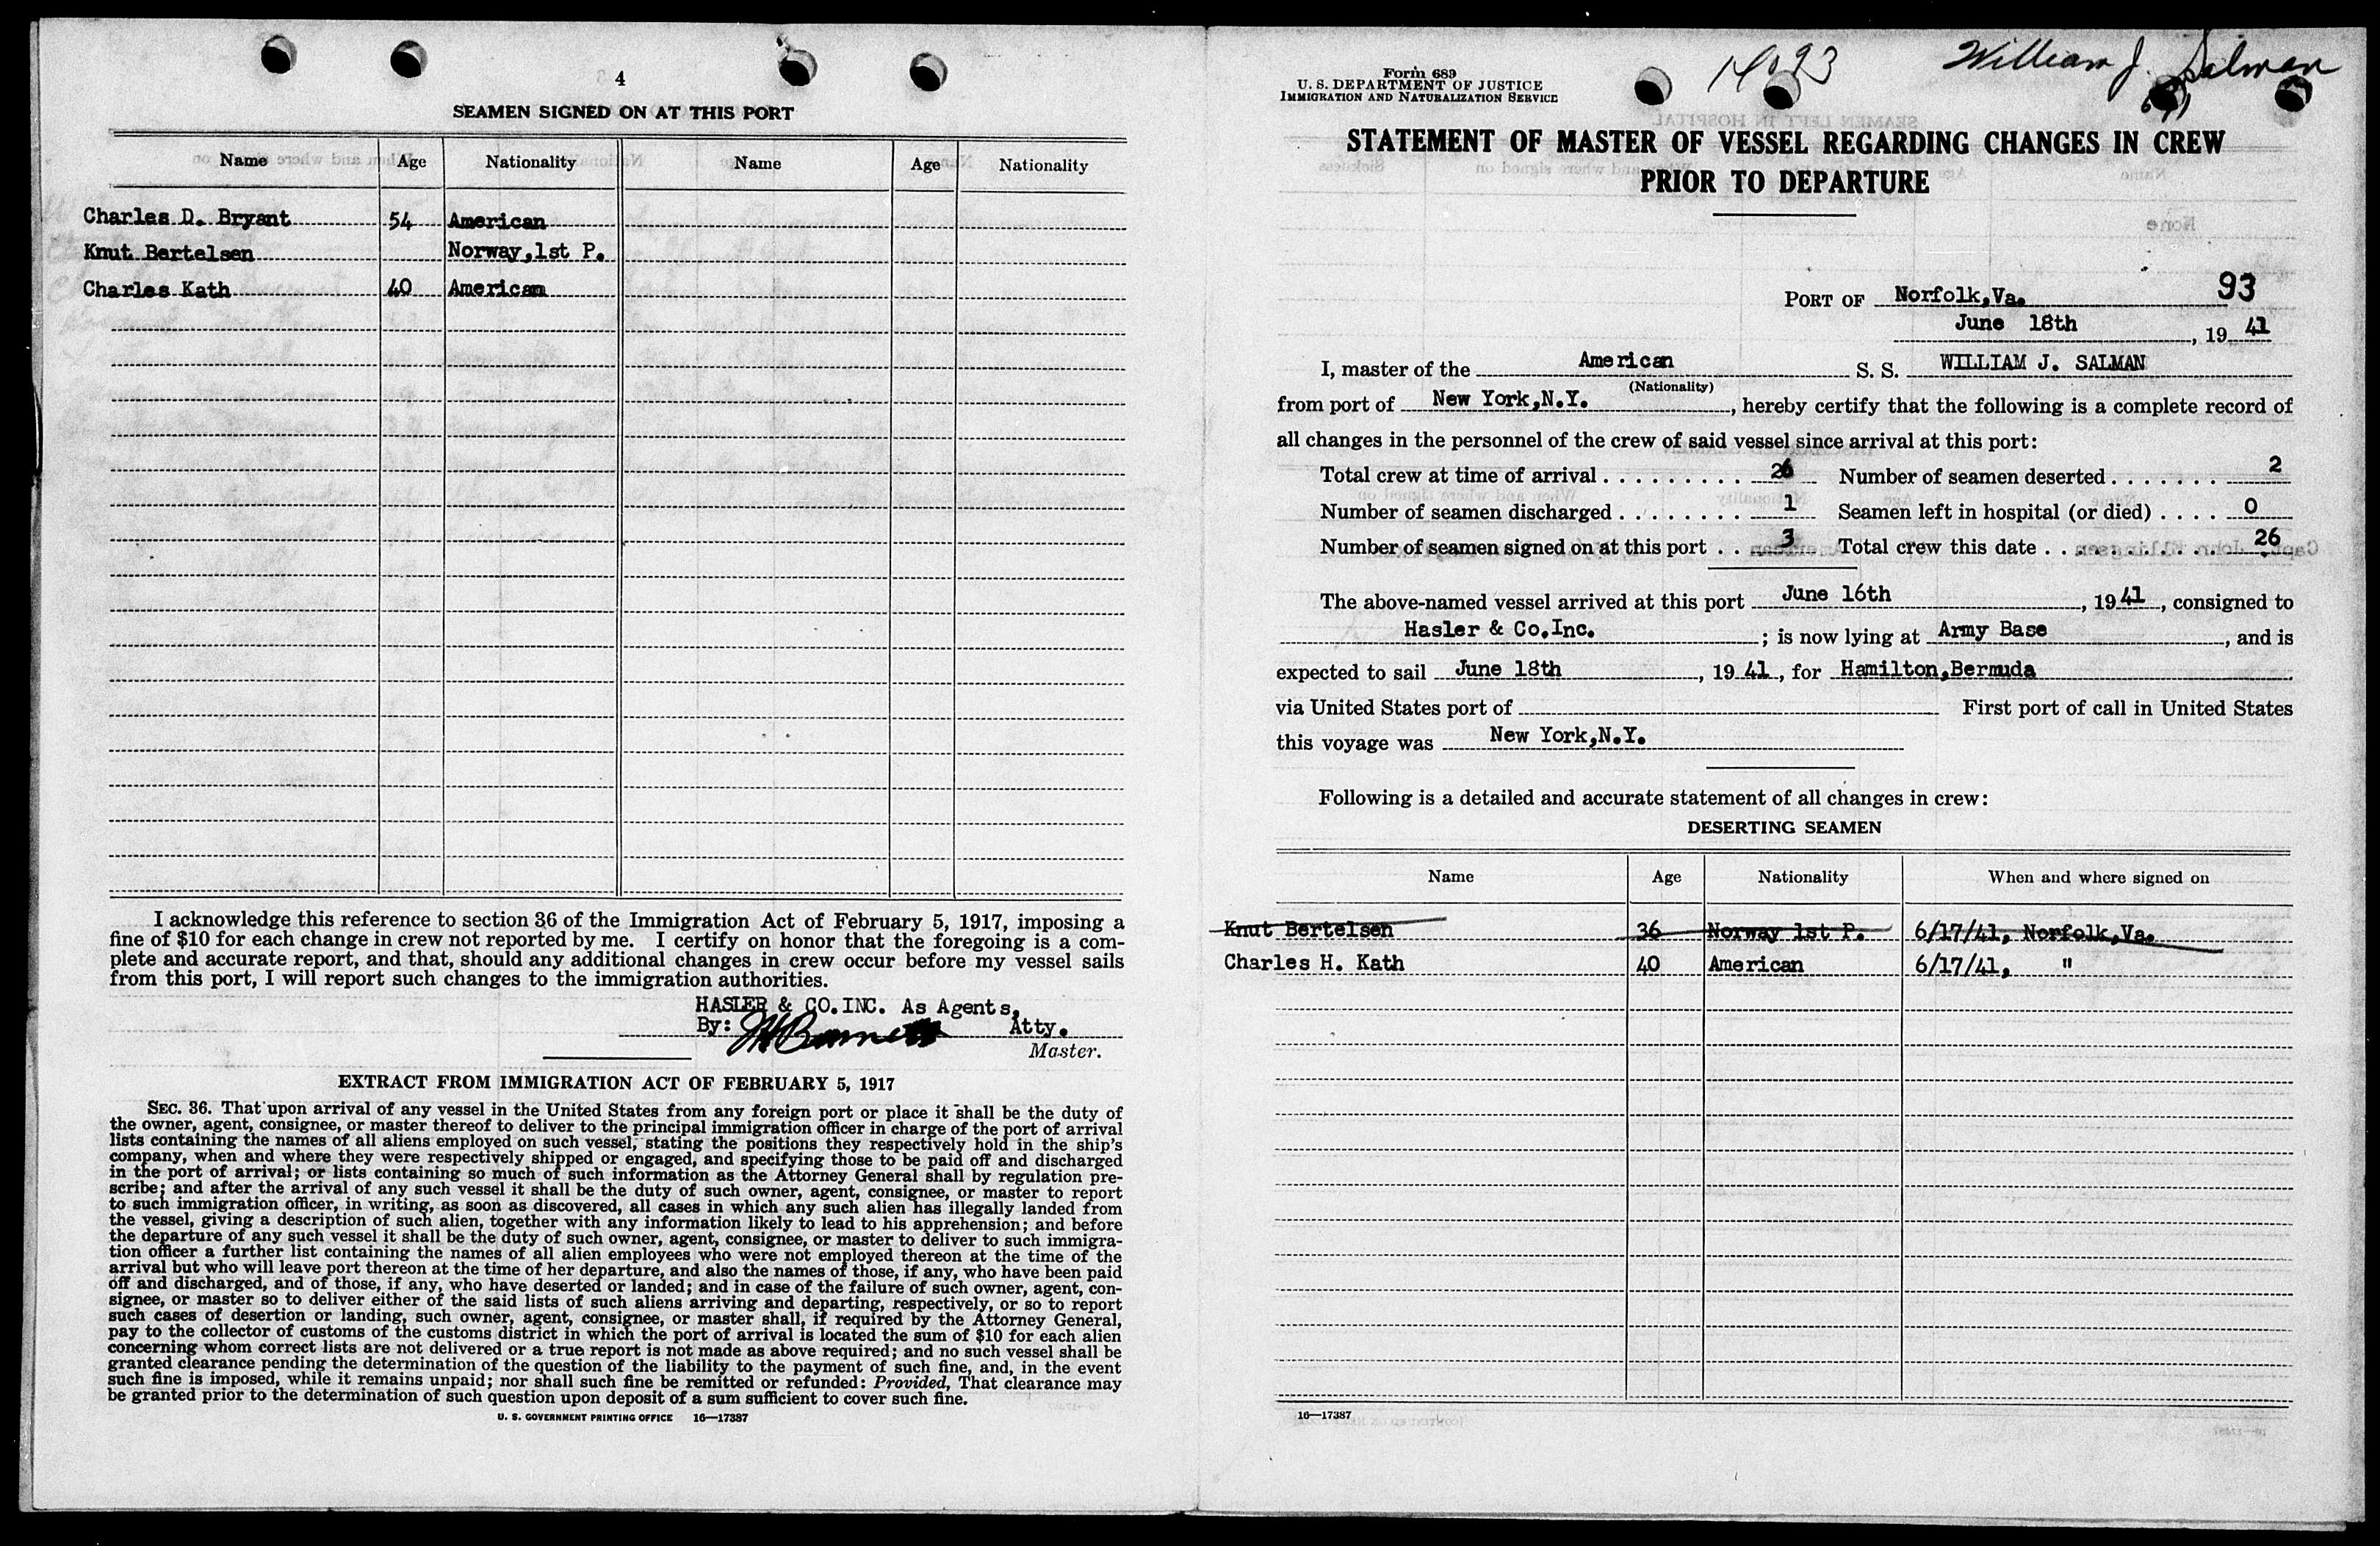 4
SEAMEN SIGNED ON AT THIS PORT
Name Age Nationality Name Age Nationality
Charles D. Bryant 54 American
Knut Bertelsen Norway,1st P.
Charles Kath 40 American
I acknowledge this reference to section 36 of the Immigration Act of February 5, 1917, imposing a
fine of $10 for each change in crew not reported by me. I certify on honor that the foregoing is a com-
plete and accurate report, and that, should any additional changes in crew occur before my vessel sails
from this port, I will report such changes to the immigration authorities.
HASLER & CO.INC. As Agents,
By: Atty.
Master.
EXTRACT FROM IMMIGRATION ACT OF FEBRUARY 5, 1917
SEC. 36. That upon arrival of any vessel in the United States from any foreign port or place it shall be the duty of
the owner, agent, consignee, or master thereof to deliver to the principal immigration officer in charge of the port of arrival
lists containing the names of all aliens employed on such vessel, stating the positions they respectively hold in the ship's
company, when and where they were respectively shipped or engaged, and specifying those to be paid off and discharged
in the port of arrival; or lists containing so much of such information as the Attorney General shall by regulation pre-
scribe; and after the arrival of any such vessel it shall be the duty of such owner, agent, consignee, or master to report
to such immigration officer, in writing, as soon as discovered, all cases in which any such alien has illegally landed from
the vessel, giving a description of such alien, together with any information likely to lead to his apprehension; and before
the departure of any such vessel it shall be the duty of such owner, agent, consignee, or master to deliver to such immigra-
tion officer a further list containing the names of all alien employees who were not employed thereon at the time of the
arrival but who will leave port thereon at the time of her departure, and also the names of those, if any, who have been paid
off and discharged, and of those, if any, who have deserted or landed; and in case of the failure of such owner, agent, con-
signee, or master so to deliver either of the said lists of such aliens arriving and departing, respectively, or so to report
such cases of desertion or landing, such owner, agent, consignee, or master shall, if required by the Attorney General,
pay to the collector of customs of the customs district in which the port of arrival is located the sum of $10 for each alien
concerning whom correct lists are not delivered or a true report is not made as above required; and no such vessel shall be
granted clearance pending the determination of the question of the liability to the payment of such fine, and, in the event
such fine is imposed, while it remains unpaid; nor shall such fine be remitted or refunded: Provided, That clearance may
be granted prior to the determination of such question upon deposit of a sum sufficient to cover such fine.
U. S. GOVERNMENT PRINTING OFFICE 16—17387
Form 689
U. S. DEPARTMENT OF JUSTICE
IMMIGRATION AND NATURALIZATION SERVICE
William J. Salman
STATEMENT OF MASTER OF VESSEL REGARDING CHANGES IN CREW
PRIOR TO DEPARTURE
PORT OF Norfolk,Va. 93
June 18th, 19 41
I, master of the American S. S. WILLIAM J. SALMAN
(Nationality)
from port of New York,N.Y., hereby certify that the following is a complete record of
all changes in the personnel of the crew of said vessel since arrival at this port:
Total crew at time of arrival . . . . . . . . . 26 Number of seamen deserted . . . . . . . 2
Number of seamen discharged . . . . . . . . 1 Seamen left in hospital (or died) . . . . 0
Number of seamen signed on at this port . . 3 Total crew this date . . . . . . . . . . . 26
The above-named vessel arrived at this port June 16th, 19 41, consigned to
Hasler & Co.Inc.; is now lying at Army Base, and is
expected to sail June 18th, 19 41, for Hamilton,Bermuda.
via United States port of First port of call in United States
this voyage was New York,N.Y.
Following is a detailed and accurate statement of all changes in crew:
DESERTING SEAMEN
Name Age Nationality When and where signed on
Knut Bertelsen 36 Norway 1st P. 6/17/41, Norfolk,Va.
Charles H. Kath 40 American 6/17/41, "
16—17387